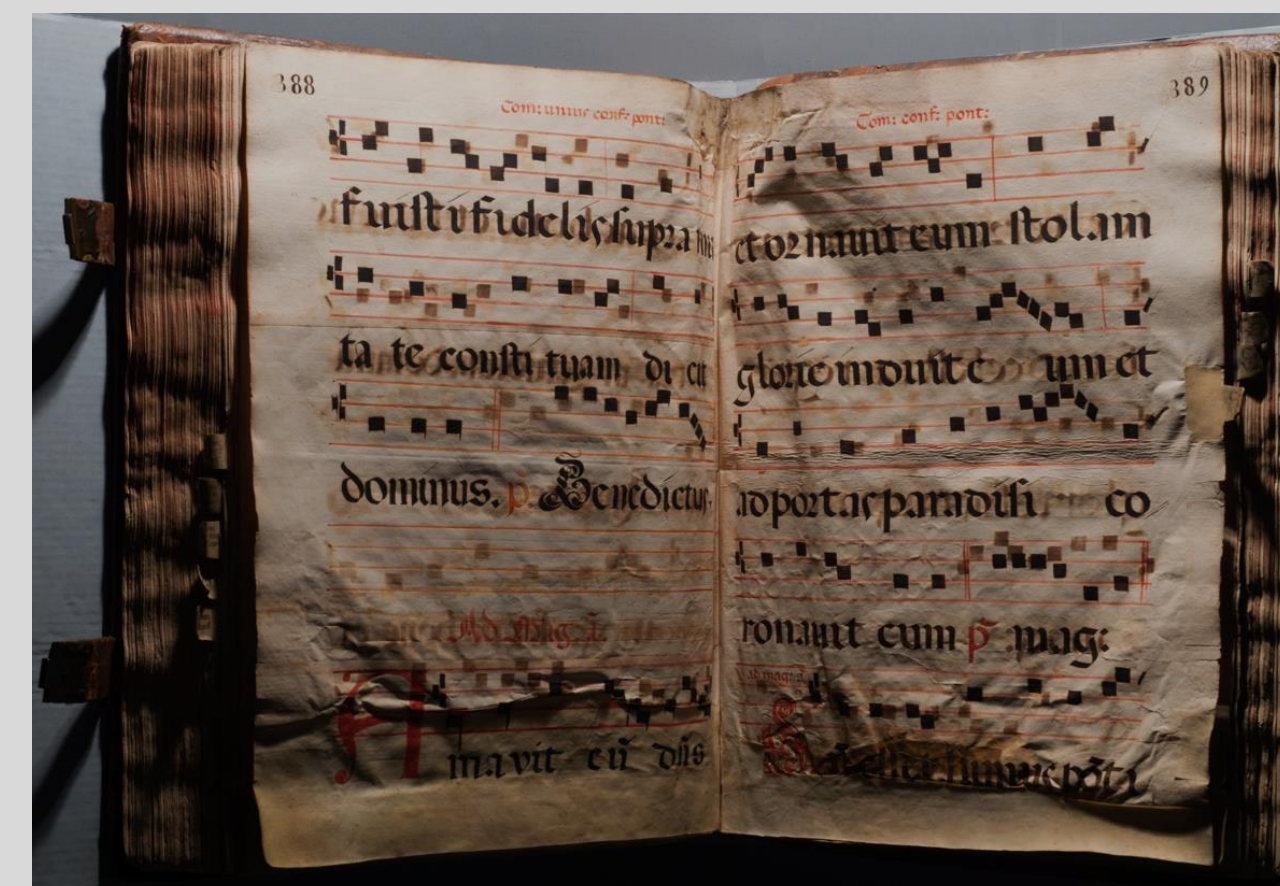 388
Com: unius conf: pont:
fuisti fidelis supra
ta te consti tuam di cit
dominus. p. Benedictus.
Ad Mag: a.
Amavit eū dn̄s
389
Com: conf: pont:
et ornauit eum stolam
glorie induit e um et
ad portas paradisi co
ronauit cum p̄ mag:
ad mag: a.